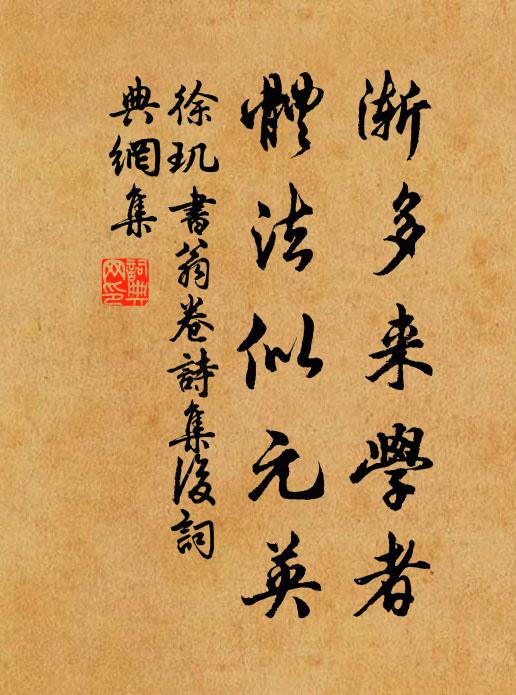 漸多来學者
體法似元英
徐玑書翁卷詩集後詞
典網集
詞典
网印